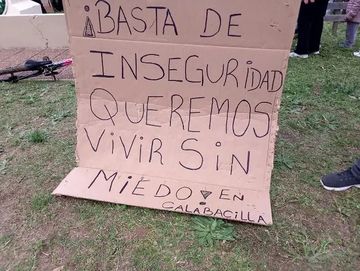 ¡BASTA DE
INSEGURIDAD
QUEREMOS
VIVIR SIN
MIEDO EN
CALABACILLA